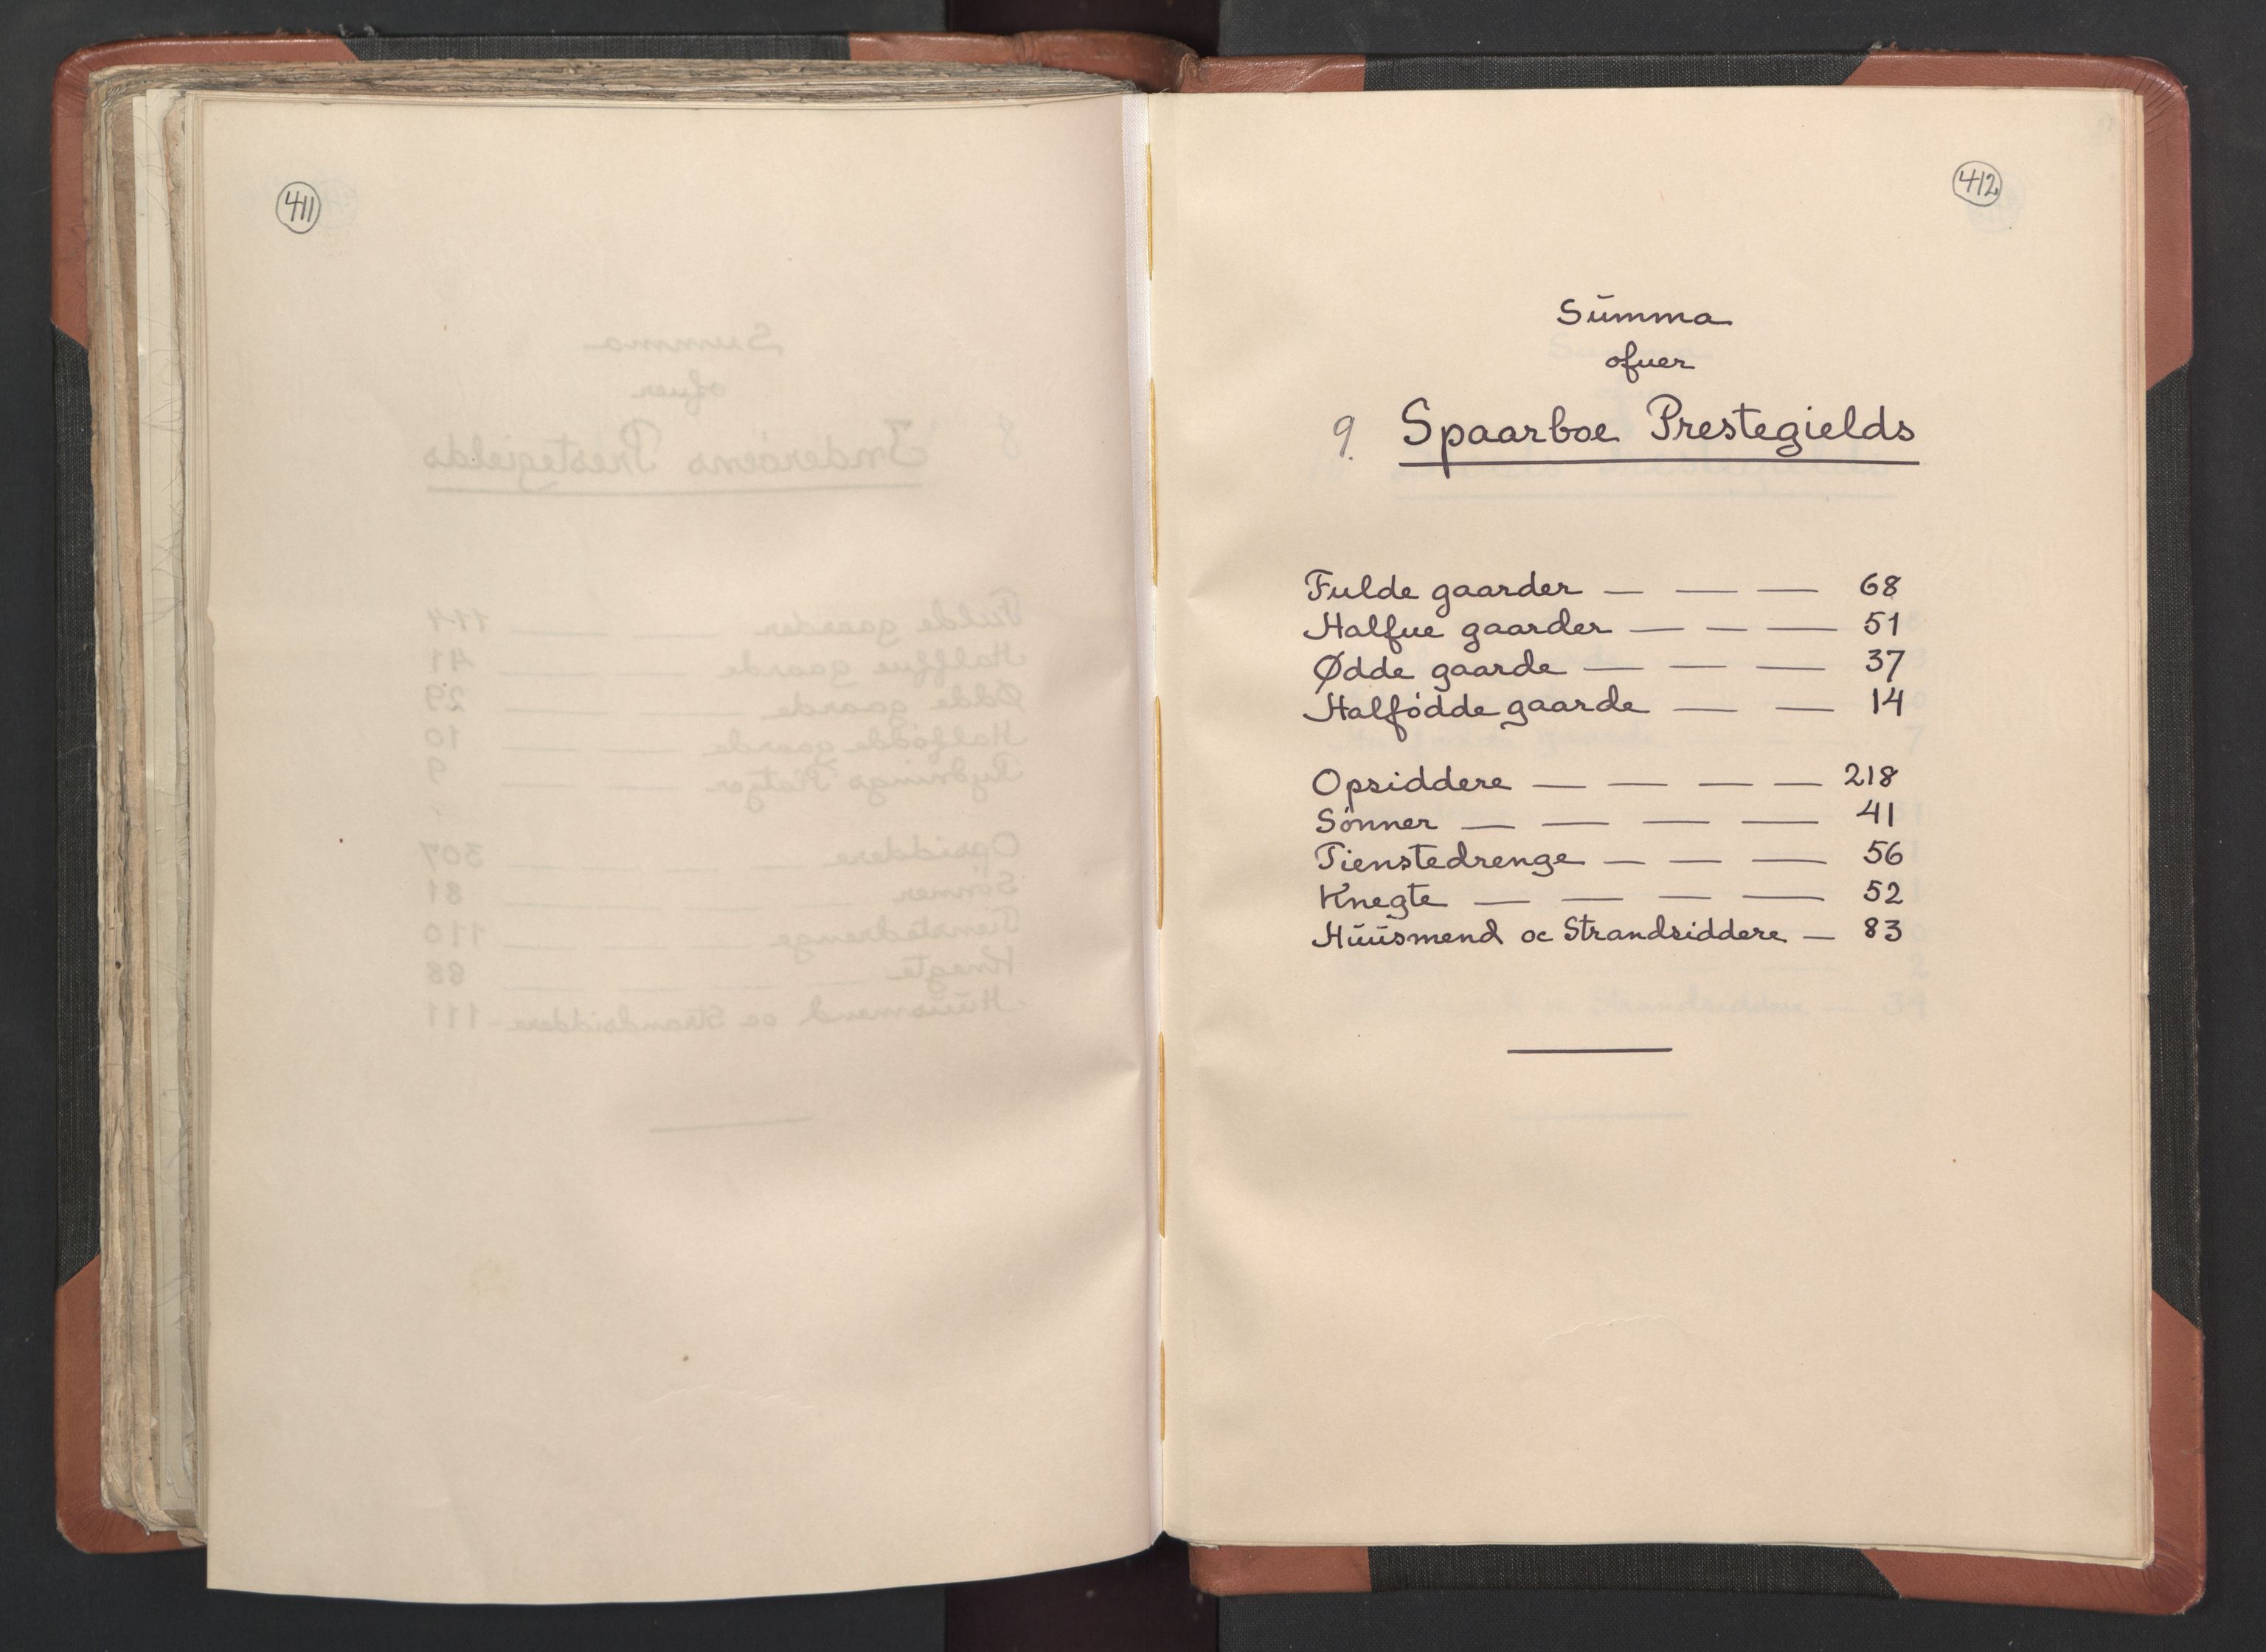 411
412
Summa
ofuer
9. Spaarboe Prestegields
Fulde gaarder — — — 68
Halfue gaarder — — — 51
Ødde gaarde — — — 37
Halfödde gaarde — — 14
Opsiddere — — — — 218
Sönner — — — — 41
Tienstedrenge — — — 56
Knegte — — — — 52
Hüüsmend oc Strandsiddere — 83